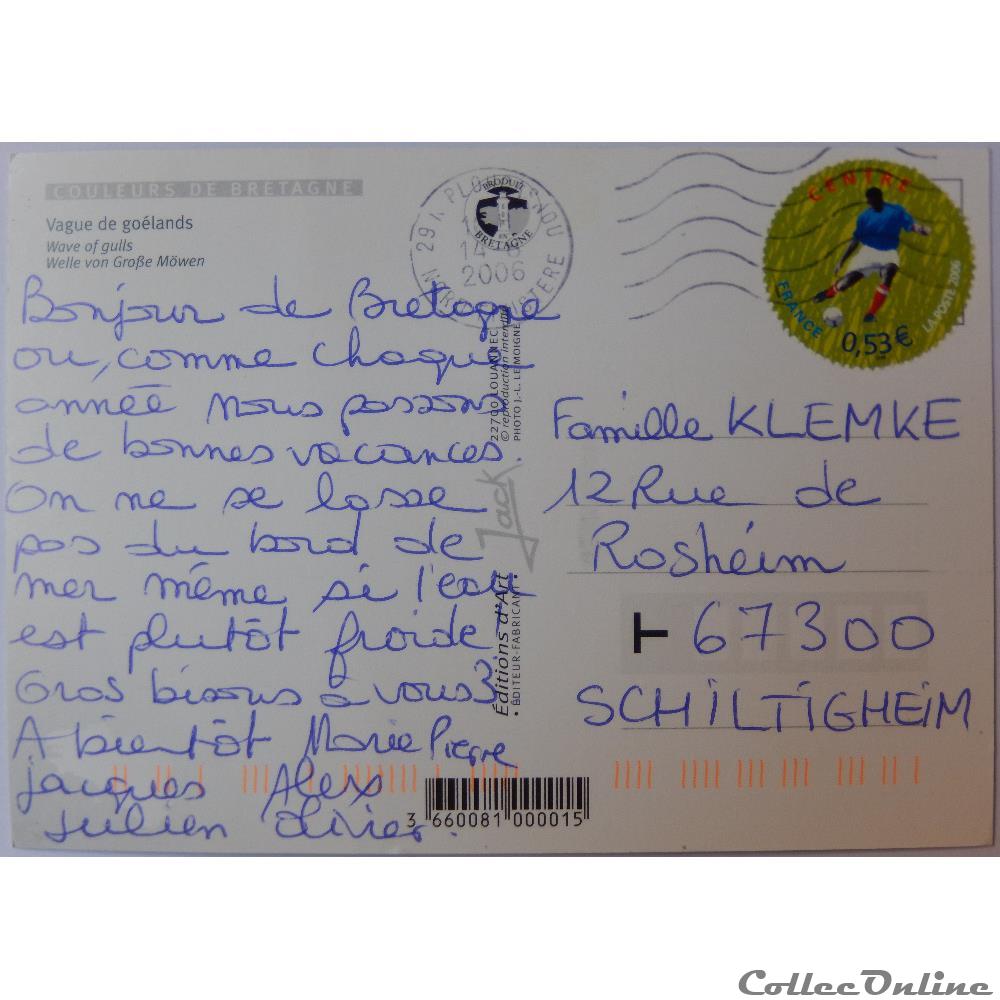 COULEURS DE BRETAGNE
Vague de goélands
Wave of gulls
Welle von Große Möwen
Bonjour de Bretagne
ou, comme chaque
année nous passons
de bonnes vacances.
On ne se lasse
pas du bord de
mer même si l'eau
est plutôt froide!
Gros bisous à vous 3.
A bientôt Marie Pierre
jacques Alex
Julien Olivier.
PRODUIT
EN
BRETAGNE
14
2006
PHOTO J.-L. LE MOIGNE
© reproduction interdite
22700 LOUANNEC
Jack
Éditions d'Art
• ÉDITEUR-FABRICANT •
3 660081 000015
CENTRE
FRANCE
0,53€
LA POSTE 2006
Famille KLEMKE
12 Rue de
Rosheim
67300
SCHILTIGHEIM
CollecOnline